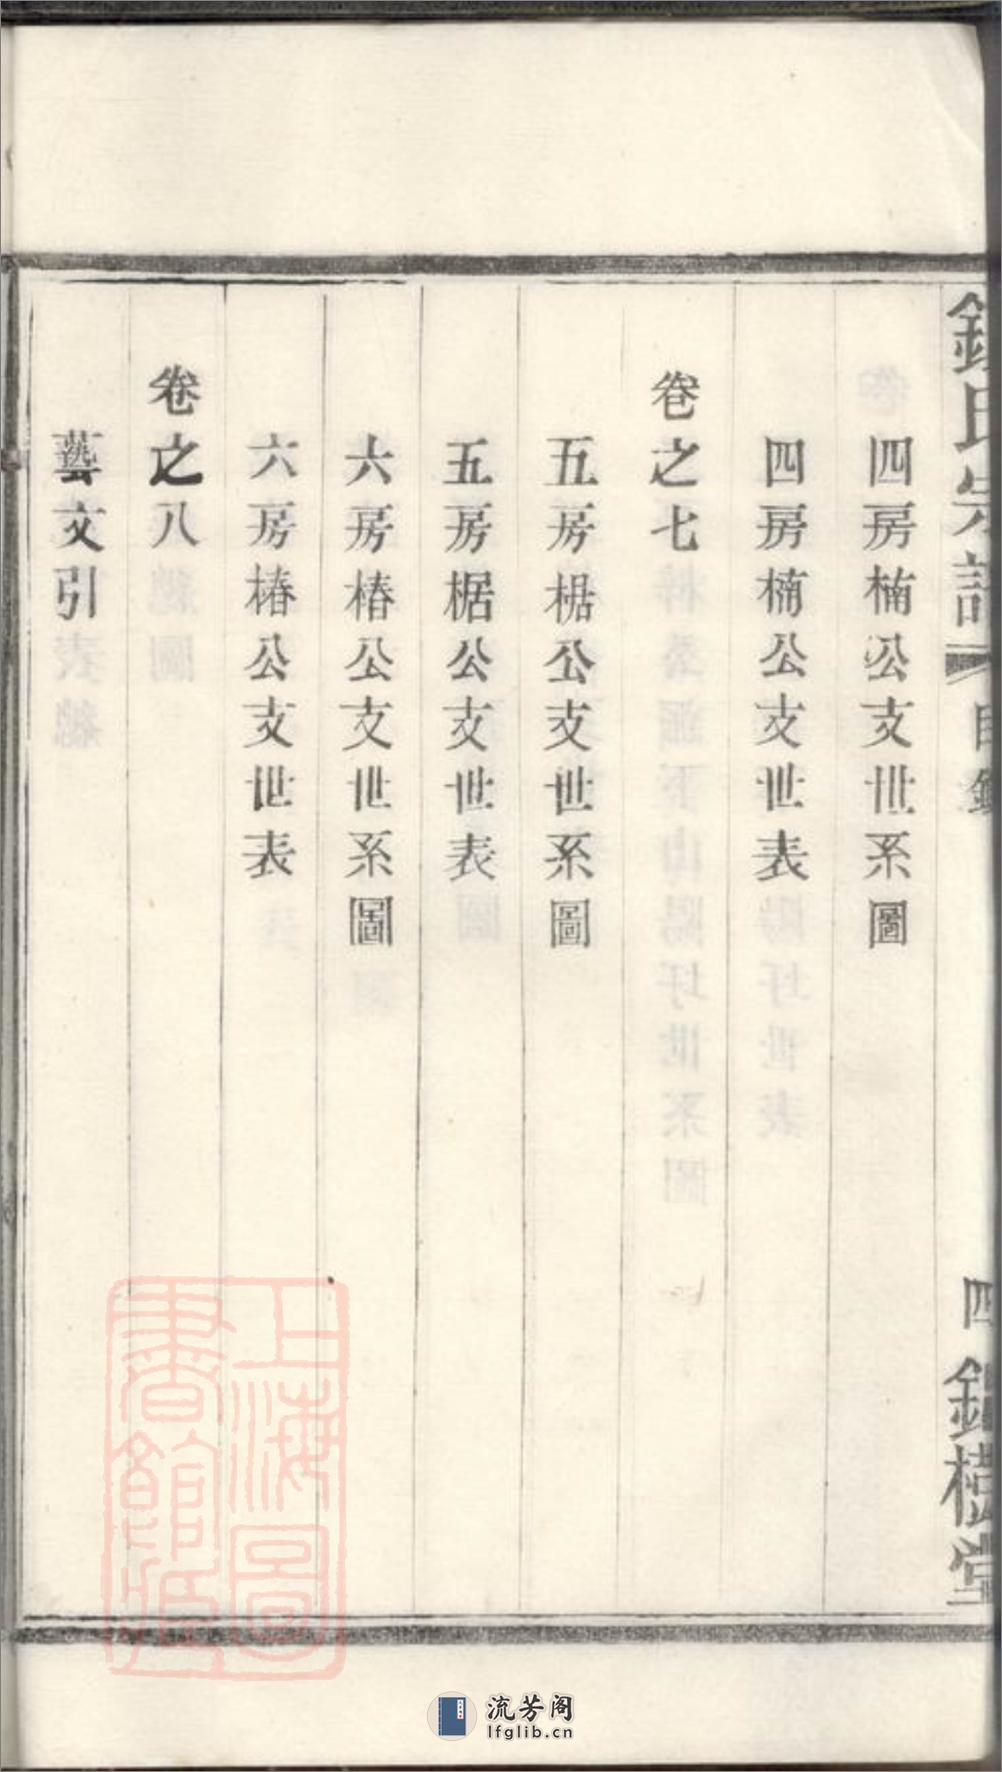 氏宗譜 目錄 四 堂
四房楠公支世系圖
四房楠公支世表
卷之七
五房椐公支世系圖
五房椐公支世表
六房椿公支世系圖
六房椿公支世表
卷之八
藝文引
上海圖
書館藏
流芳阁
lfglib.cn